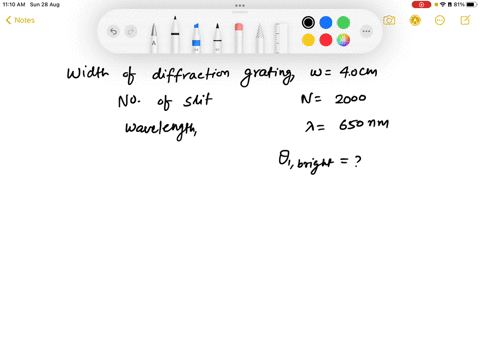 11:10 AM Sun 28 Aug
81%
Notes
Width of diffraction grating, w = 4.0cm
No. of slit N = 2000
Wavelength, λ = 650 nm
θ1, bright = ?